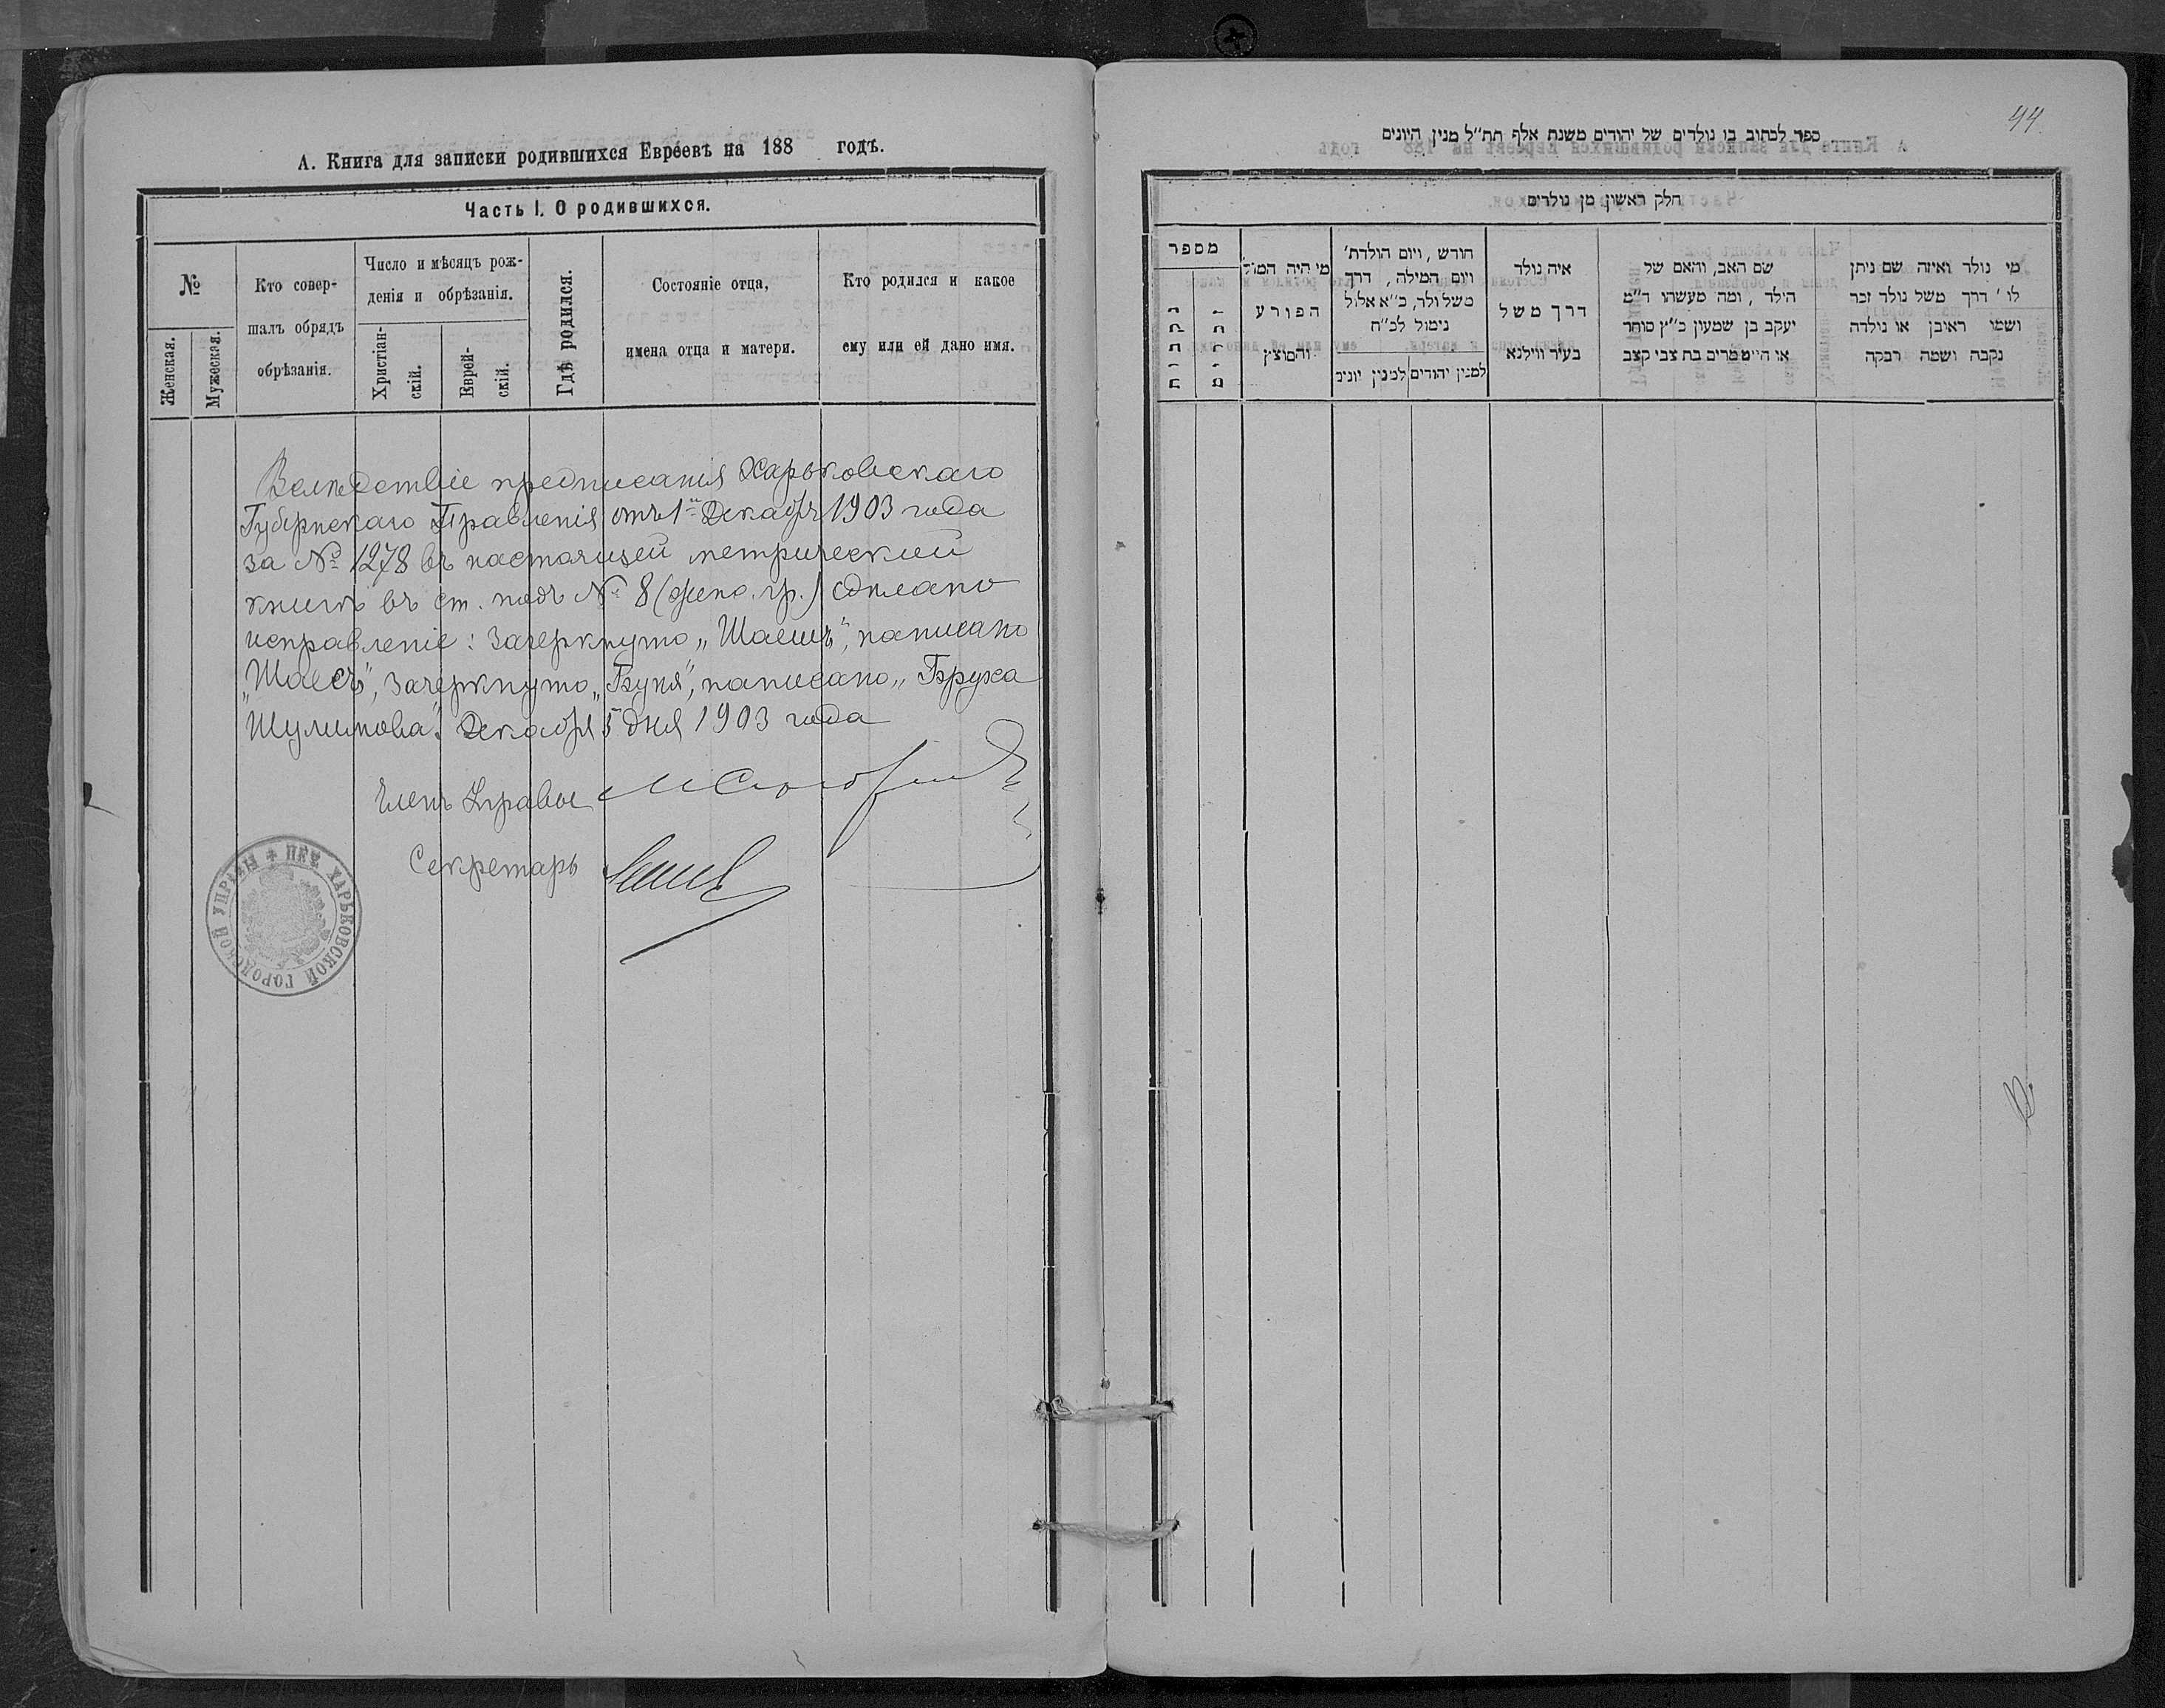 А. Книга для записки родившихся Евреевъ на 188 годъ.
Часть I. О родившихся.
№
Женская.
Мужеская.
Кто совер-
шалъ обрядъ
обрѣзанія.
Число и мѣсяцъ рож-
денія и обрѣзанія.
Христіан-
скій.
Еврей-
скій.
Гдѣ родился.
Состояніе отца,
имена отца и матери.
Кто родился и какое
ему или ей дано имя.
Вслѣдствіе предписанія Харьковскаго
Губернскаго Правленія отъ 1го Декабря 1903 года
за № 1278 въ настоящей метрической
книгѣ въ ст. подъ № 8 (женс. гр.) сдѣлано
исправленіе: зачеркнуто „Шаешъ", написано
„Шаесъ", зачеркнуто „Буня", написано „Бруха
Шулимова". Декабря 5 дня 1903 года
Членъ Управы
Секретарь
ПЕЧ. ХАРЬКОВСКОЙ ГОРОДСКОЙ УПРАВЫ
44.
ספר לכתוב בו נולדים של יהודים משנת אלף תת״ל מנין היונים
חלק ראשון מן נולדים
מספר
נקבות
זכרים
מי היה המוהל
הפורע
והמוצץ
חורש, ויום הולדת׳
ויום המילה, דרך
משל ולד, כ״א אלול
נימול לכ״ח
למנין יהודים
למנין יונים
איה נולד
דרך משל
בעיר ווילנא
שם האב, והאם של
הילד, ומה מעשהו ד״מ
יעקב בן שמעון כ״ץ סוחר
או הייטמרים בת צבי קצב
מי נולד ואיזה שם ניתן
לו׳ דרך משל נולד זכר
ושמו ראובן או נולדה
נקבה ושמה רבקה